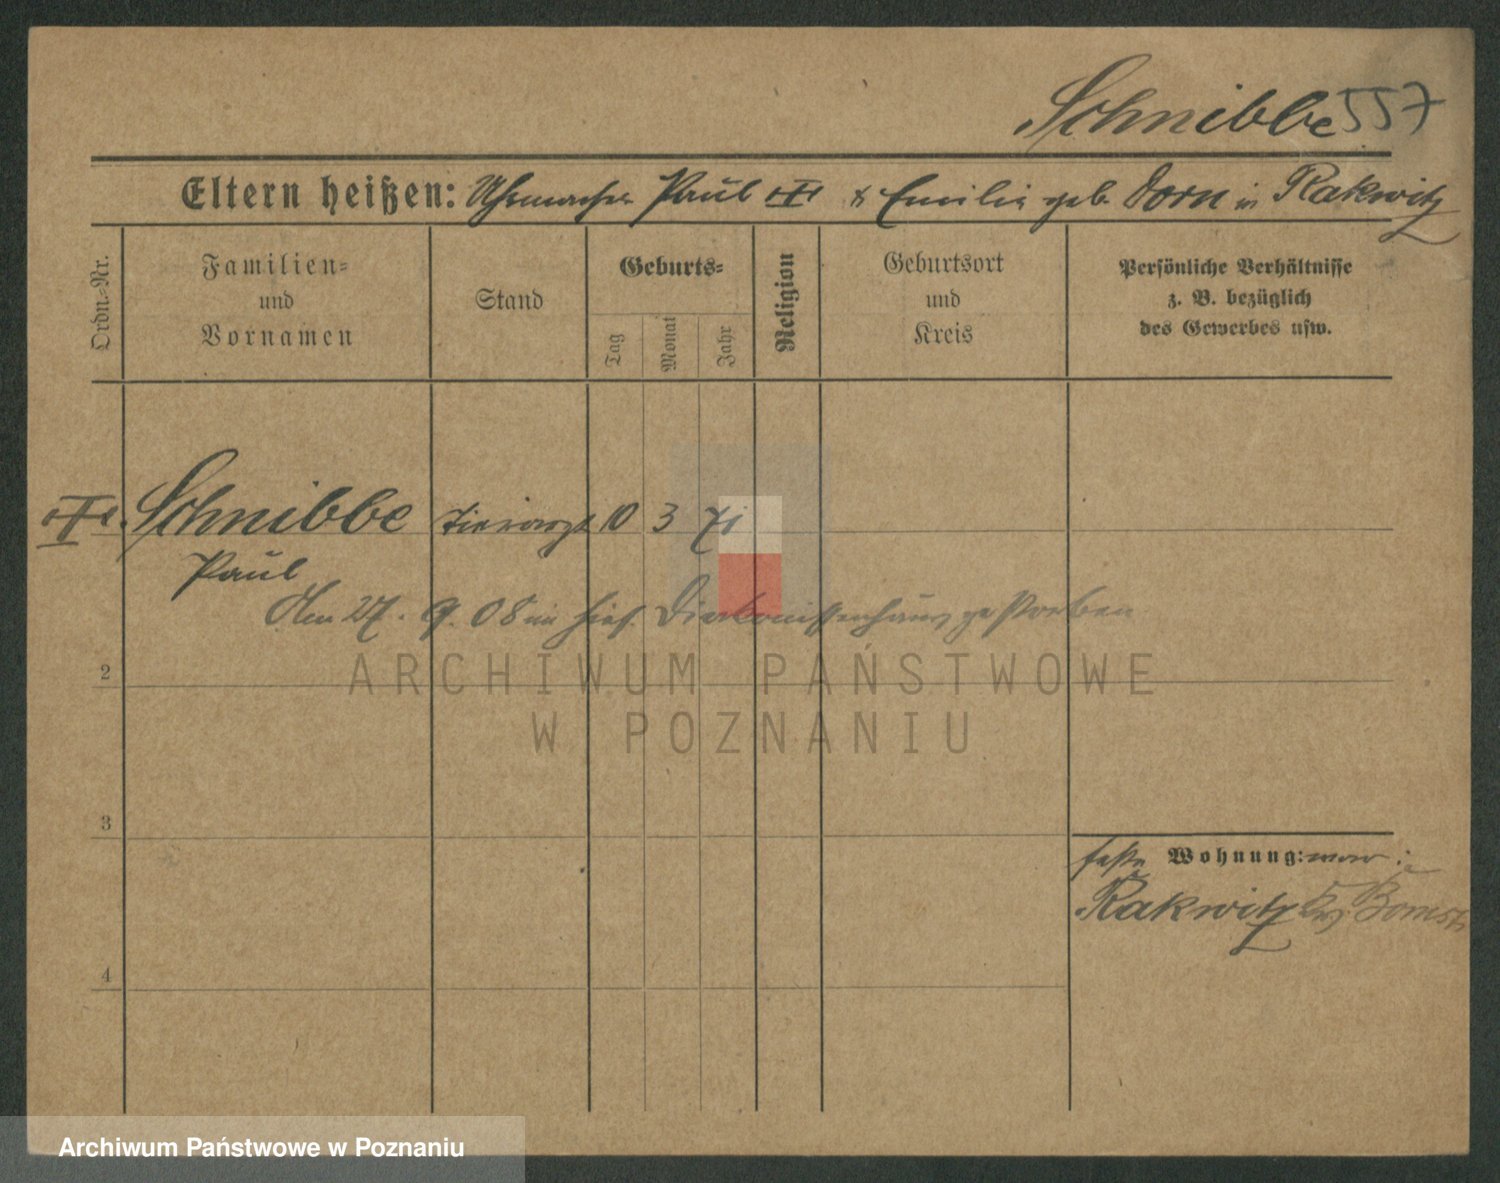 Schnibbe 557
Eltern heißen: Uhrmacher Paul & Emilie geb. Dorn in Rakwitz
Ordn.-Nr.
Familien-
und
Vornamen
Stand
Geburts-
Tag
Monat
Jahr
Religion
Geburtsort
und
Kreis
Persönliche Verhältnisse
z. B. bezüglich
des Gewerbes usw.
Schnibbe Tierarzt 10 3 71
Paul
Am 27. 9. 08 im hies. Diakonissenhaus gestorben
ARCHIWUM PAŃSTWOWE
W POZNANIU
2
3
4
Wohnung: war:
Rakwitz Krs. Bomst
Archiwum Państwowe w Poznaniu